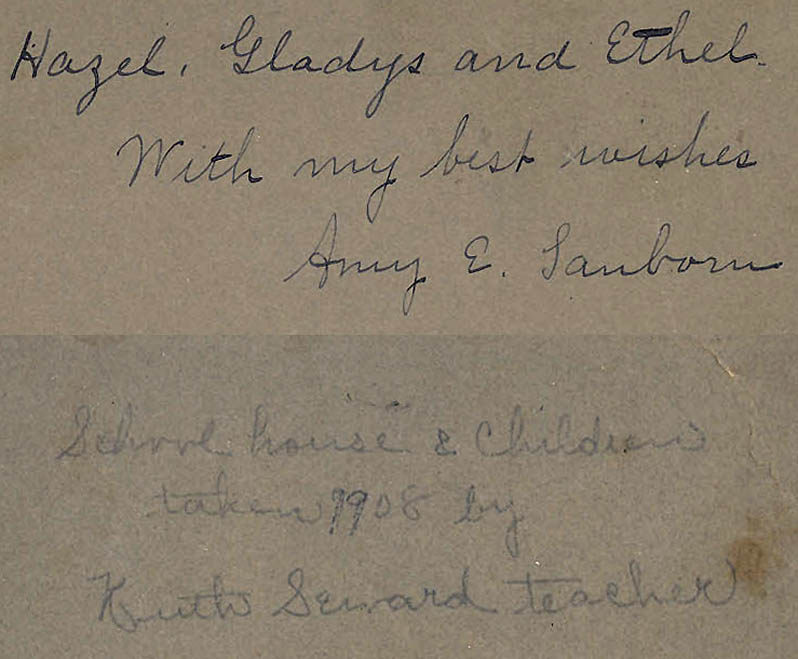 Hazel, Gladys and Ethel.
With my best wishes
Amy E. Sanborn
School house & Children
taken 1908 by
Ruth Seward teacher